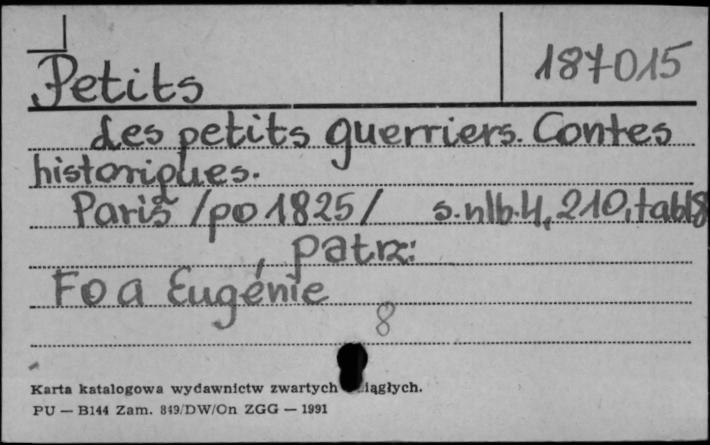 Petits
187015
Les petits guerriers. Contes
historiques.
Paris /po 1825/ s.nlb.4, 210, tabl8
patrz:
Foa Eugénie
8
Karta katalogowa wydawnictw zwartych iągłych.
PU — B144 Zam. 849/DW/On ZGG — 1991